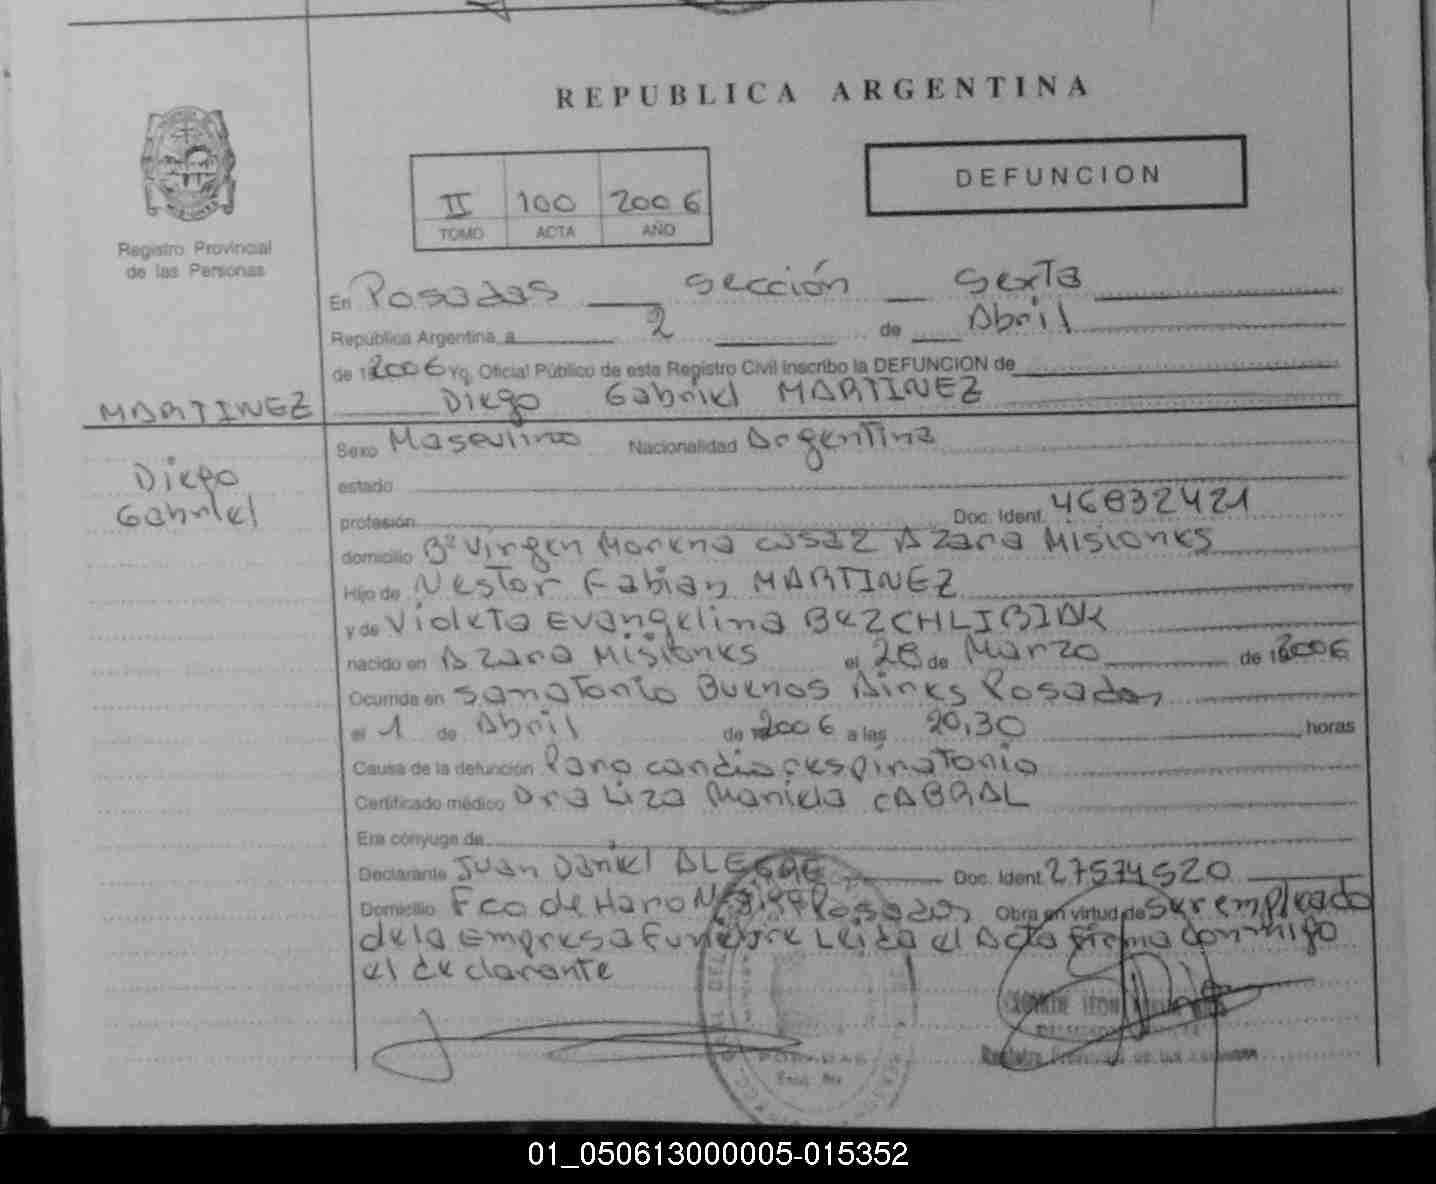 REPUBLICA ARGENTINA
DEFUNCION
II 100 2006
TOMO ACTA AÑO
Registro Provincial
de las Personas
En Posadas sección sexta
República Argentina, a 2 de Abril
de 12006 Yo, Oficial Público de este Registro Civil inscribo la DEFUNCION de
MARTINEZ
Diego Gabriel MARTINEZ
Diego
Gabriel
Sexo Masculino Nacionalidad Argentina
estado
profesión Doc. Ident. 46832421
domicilio Bº Virgen Morena casa 2 Azara Misiones
Hijo de Nestor Fabian MARTINEZ
y de Violeta Evangelina BEZCHLIBIAK
nacido en Azara Misiones el 28 de Marzo de 2006
Ocurrida en Sanatorio Buenos Aires Posadas
el 1 de Abril de 2006 a las 20,30 horas
Causa de la defunción Paro cardio respiratorio
Certificado médico Dra Liza Mariela CABRAL
Era cónyuge de
Declarante Juan Daniel ALEGRE Doc. Ident. 27574520
Domicilio Fco de Haro Posadas Obra en virtud de ser empleado
de la Empresa Funebre Leida el Acta firma conmigo
el declarante
POSADAS
01_050613000005-015352